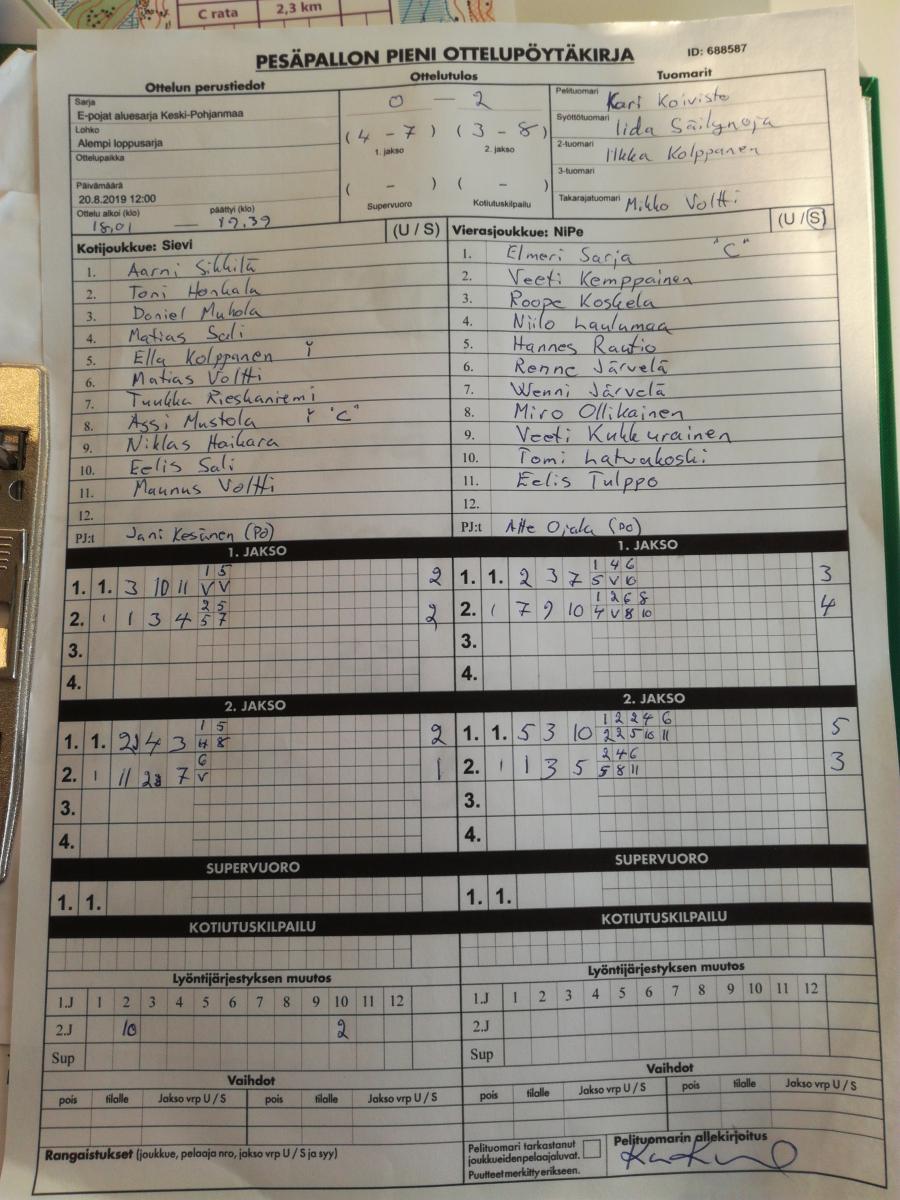 C rata 2,3 km
PESÄPALLON PIENI OTTELUPÖYTÄKIRJA ID: 688587
Ottelun perustiedot Ottelutulos Tuomarit
Sarja
E-pojat aluesarja Keski-Pohjanmaa
Lohko
Alempi loppusarja
Ottelupaikka
Päivämäärä
20.8.2019 12:00
Ottelu alkoi (klo) päättyi (klo)
18,01 — 19,39
0 — 2
(4 - 7) (3 - 8)
1. jakso 2. jakso
( - ) ( - )
Supervuoro Kotiutuskilpailu
Pelituomari Kari Koivisto
Syöttötuomari Iida Säilynoja
2-tuomari Ilkka Kolppanen
3-tuomari
Takarajatuomari Mikko Voltti
Kotijoukkue: Sievi (U / S)
1. Aarni Sikkilä
2. Toni Honkala
3. Daniel Muhola
4. Matias Sali
5. Ella Kolppanen
6. Matias Voltti
7. Tuukka Rieskaniemi
8. Assi Mustola "C"
9. Niklas Haikara
10. Eelis Sali
11. Maunus Voltti
12.
PJ:t Jani Kesänen (PO)
Vierasjoukkue: NiPe (U / S)
1. Elmeri Sarja "C"
2. Veeti Kemppainen
3. Roope Koskela
4. Niilo Laulumaa
5. Hannes Rautio
6. Renne Järvelä
7. Wenni Järvelä
8. Miro Ollikainen
9. Veeti Kukkurainen
10. Tomi Latvakoski
11. Eelis Tulppo
12.
PJ:t Atte Ojala (PO)
1. JAKSO
1 5
1. 1. 3 10 11 V V 2
2 5
2. 1 1 3 4 5 7 2
3.
4.
2. JAKSO
1 5
1. 1. 4 3 4 8 2
6
2. 1 11 7 V 1
3.
4.
SUPERVUORO
1. 1.
KOTIUTUSKILPAILU
Lyöntijärjestyksen muutos
1.J 1 2 3 4 5 6 7 8 9 10 11 12
2.J 10 2
Sup
Vaihdot
pois tilalle Jakso vrp U / S pois tilalle Jakso vrp U / S
1. JAKSO
1 4 6
1. 1. 2 3 7 5 V 10 3
1 2 6 8
2. 1 7 9 10 4 V 8 10 4
3.
4.
2. JAKSO
1 2 2 4 6
1. 1. 5 3 10 2 2 5 10 11 5
2 4 6
2. 1 1 3 5 5 8 11 3
3.
4.
SUPERVUORO
1. 1.
KOTIUTUSKILPAILU
Lyöntijärjestyksen muutos
1.J 1 2 3 4 5 6 7 8 9 10 11 12
2.J
Sup
Vaihdot
pois tilalle Jakso vrp U / S pois tilalle Jakso vrp U / S
Rangaistukset (joukkue, pelaaja nro, jakso vrp U / S ja syy)
Pelituomari tarkastanut
joukkueidenpelaajaluvat.
Puutteet merkitty erikseen.
Pelituomarin allekirjoitus